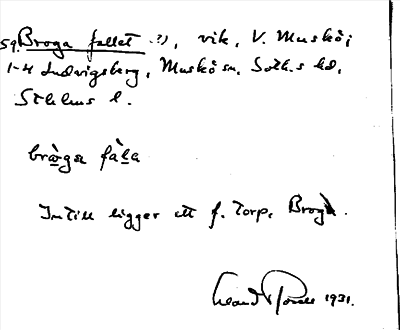 59. Broga fallet ?), vik, V. Muskö,
1-4 Ludvigsberg, Muskö sn, Soth.s hd,
Sthlms l.
bròga fàla
Intill ligger ett f. torp, Broga.
1931.